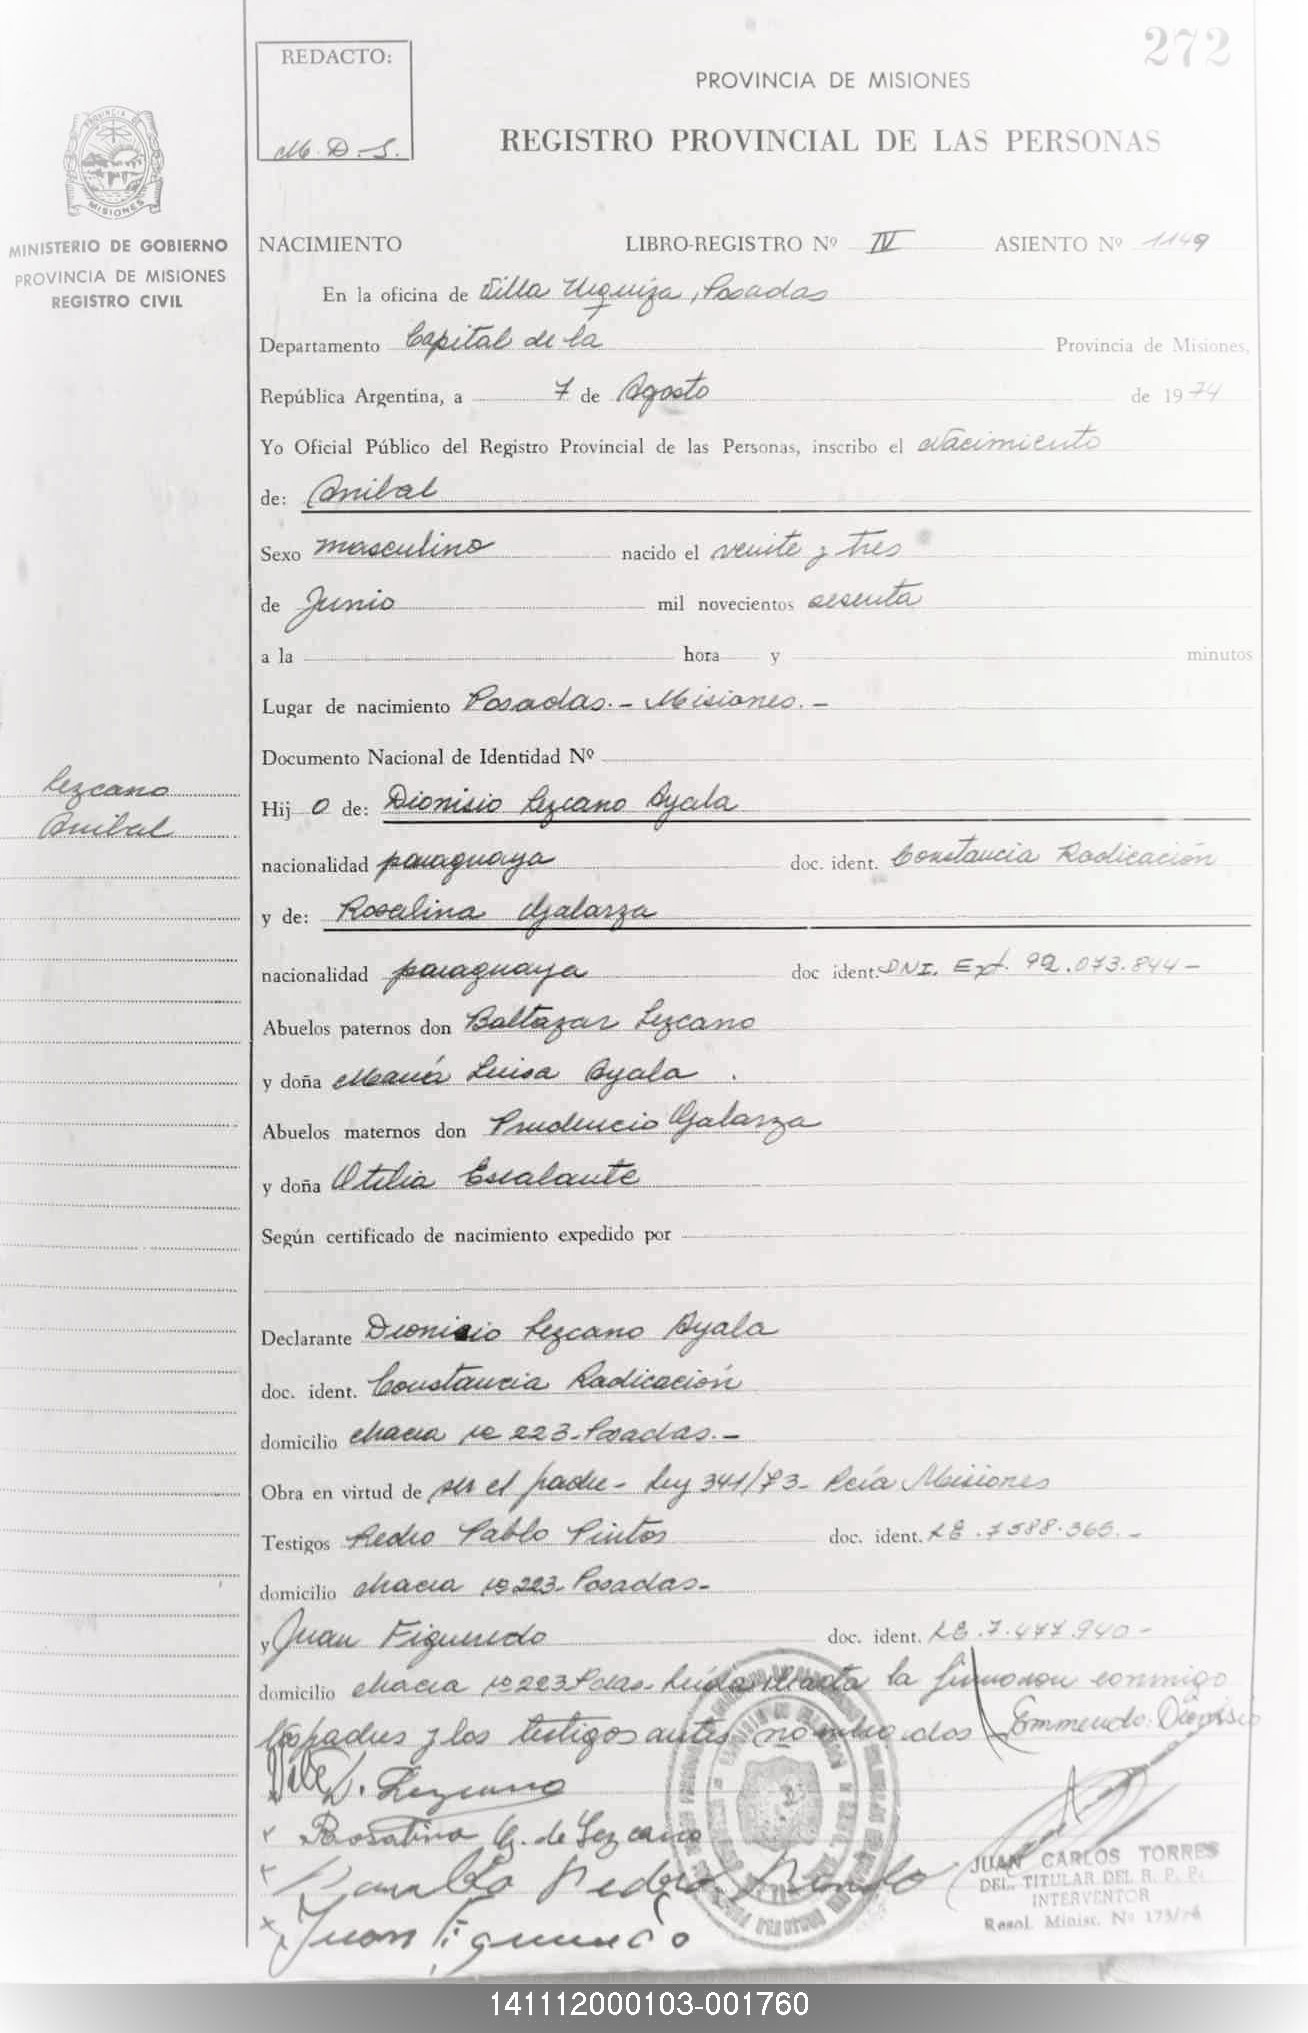 272
REDACTO:
M. D. S.
PROVINCIA DE MISIONES
REGISTRO PROVINCIAL DE LAS PERSONAS
MISIONES
MINISTERIO DE GOBIERNO
PROVINCIA DE MISIONES
REGISTRO CIVIL
NACIMIENTO LIBRO-REGISTRO Nº IV ASIENTO Nº 1149
En la oficina de Villa Urquiza, Posadas
Departamento Capital de la Provincia de Misiones,
República Argentina, a 7 de Agosto de 1974
Yo Oficial Público del Registro Provincial de las Personas, inscribo el Nacimiento
de: Anibal
Sexo masculino nacido el veinte y tres
de Junio mil novecientos sesenta
a la hora y minutos
Lugar de nacimiento Posadas.- Misiones.-
Documento Nacional de Identidad Nº
Lezcano
Anibal
Hij o de: Dionisio Lezcano Ayala
nacionalidad paraguaya doc. ident. Constancia Radicación
y de: Rosalina Galarza
nacionalidad paraguaya doc ident. DNI. Ext. 92.073.844-
Abuelos paternos don Baltazar Lezcano
y doña María Luisa Ayala .
Abuelos maternos don Prudencio Galarza
y doña Otilia Escalante
Según certificado de nacimiento expedido por
Declarante Dionisio Lezcano Ayala
doc. ident. Constancia Radicación
domicilio chacra nº 223-Posadas.-
Obra en virtud de ser el padre- Ley 341/73- Pcia Misiones
Testigos Pedro Pablo Pintos doc. ident. LE.7588.365.-
domicilio chacra nº 223-Posadas-
y Juan Figueredo doc. ident. LE.7.477.940-
domicilio chacra nº 223 Pdas- Leída el acta la firmaron conmigo
los padres y los testigos antes nombrados Enmendo: Dionisio
Vale D. Lezcano
x Rosalina G. de Lezcano
x Pedro
x Juan Figueredo
JUAN CARLOS TORRES
DEL. TITULAR DEL R. P. P.
INTERVENTOR
Resol. Minisc. Nº 173/74
141112000103-001760